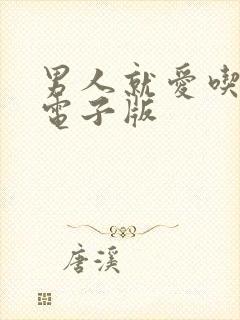 男人就愛喫
電子版
唐溪